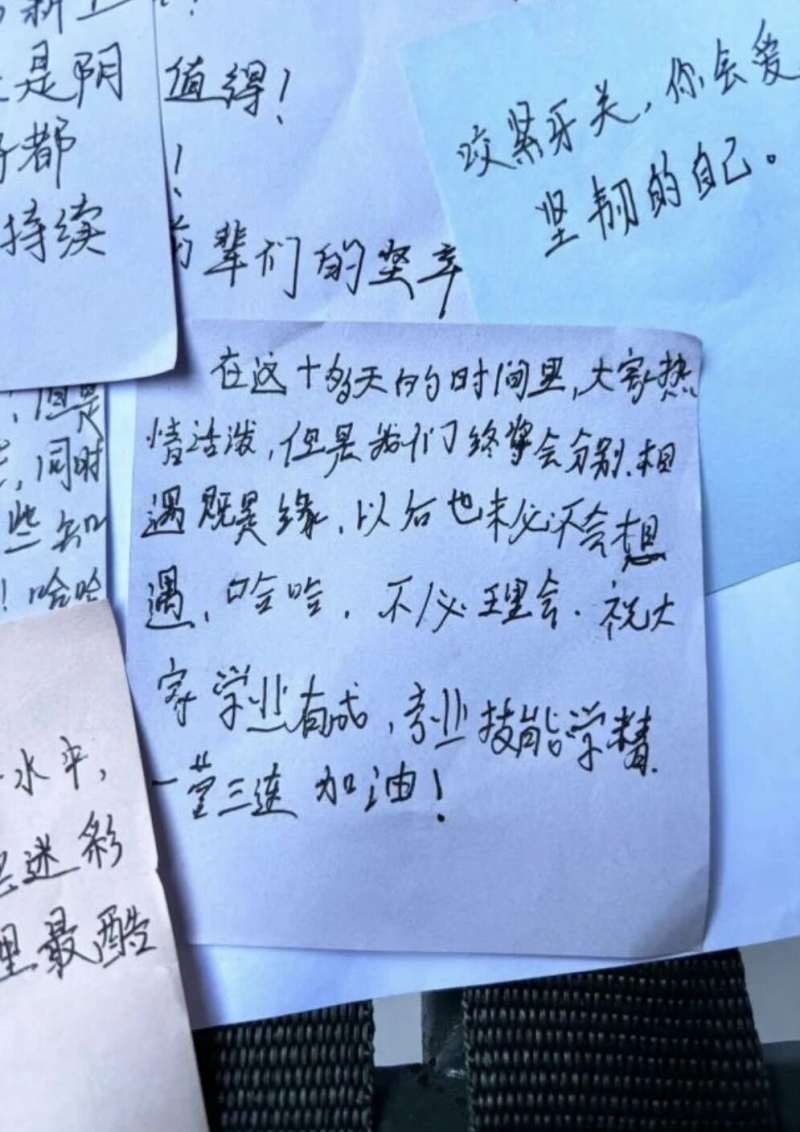 是阴
都
持续
值得!
!
辈们的坚辛
咬紧牙关,你会爱
坚韧的自己。
在这十多天的时间里,大家热
情活泼,但是我们终将会分别.相
遇既是缘,以后也未必不会想
遇,哈哈,不必理会.祝大
家学业有成,专业技能学精.
一营三连 加油!
但是
,同时
些知
!哈哈
水平,
迷彩
里最酷